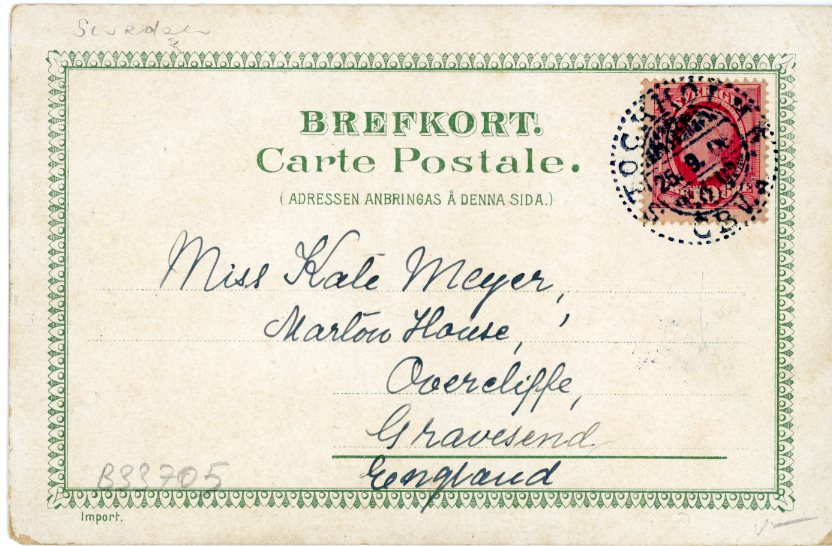 Sweden
BREFKORT.
Carte Postale.
(ADRESSEN ANBRINGAS Å DENNA SIDA.)
SVERIGE
STOCKHOLM
25. 9.
C B V.
Miss Kate Meyer,
Marton House,
Overcliffe,
Gravesend
England
B33705
Import.